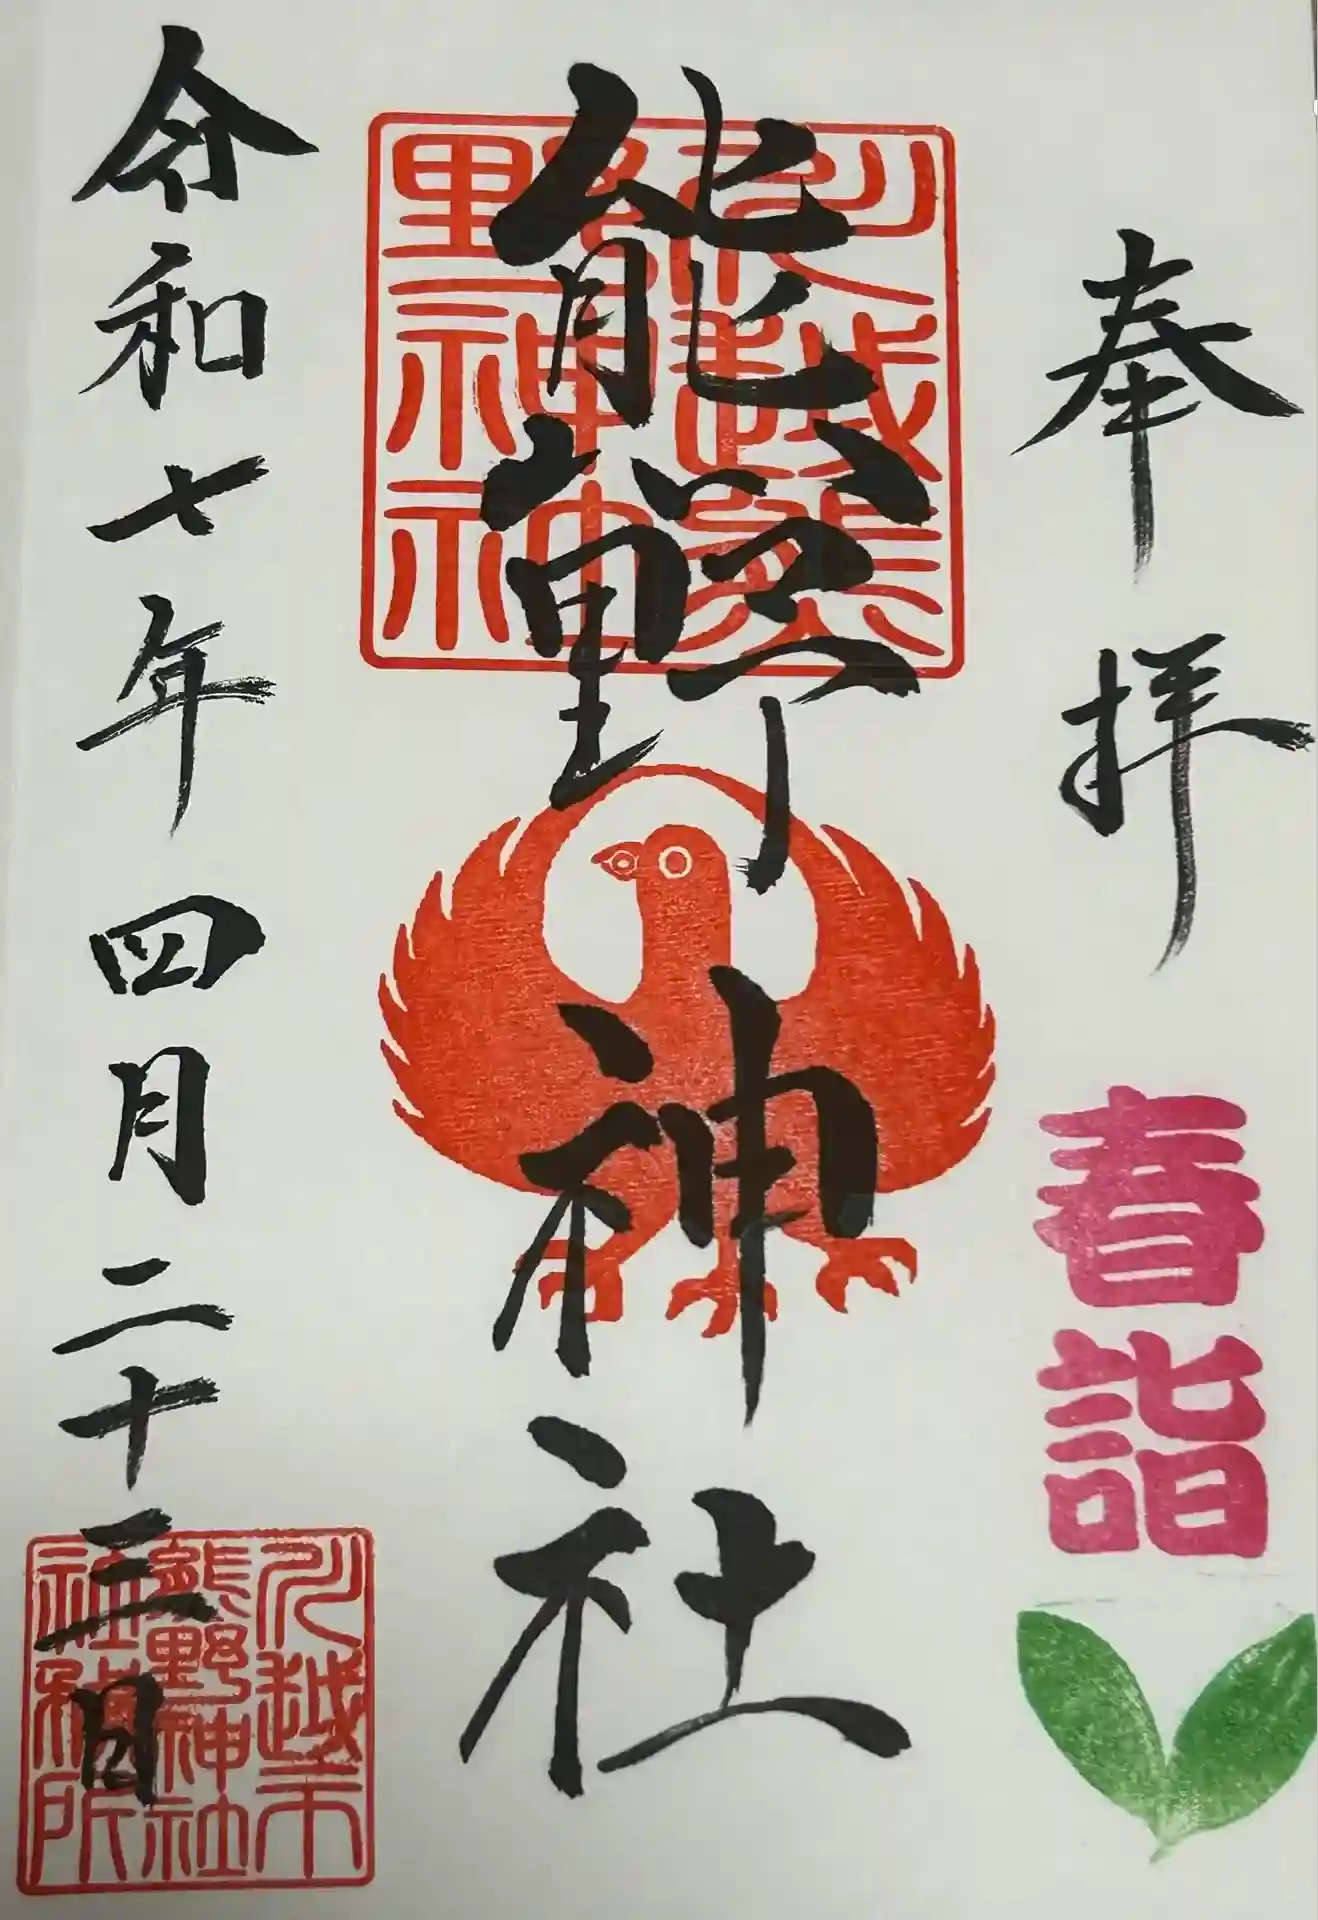 奉拝
春詣
熊野神社
川越熊
野神社
令和七年四月二十三日
川越市
熊野神社
社務所